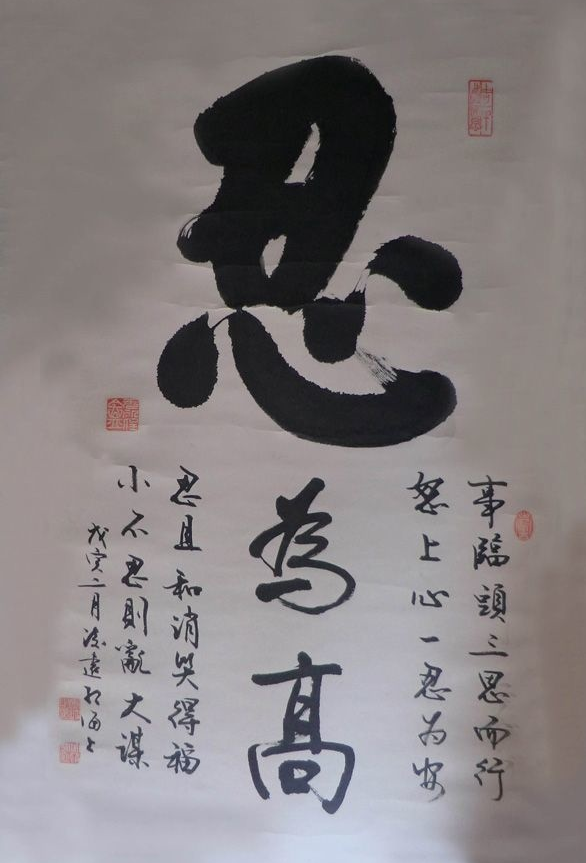 忍為高
事臨頭三思而行
怒上心一忍为安
忍且和消災得福
小不忍則亂大謀
戊寅二月